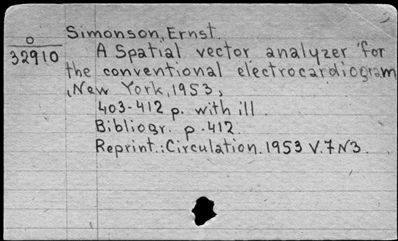 Simonson, Ernst.
O
32910
A Spatial vector analyzer for
the conventional electrocardiogram
, New York, 1953,
403-412 p. with ill.
Bibliogr. p. 412.
Reprint.: Circulation. 1953 V.7 N3.